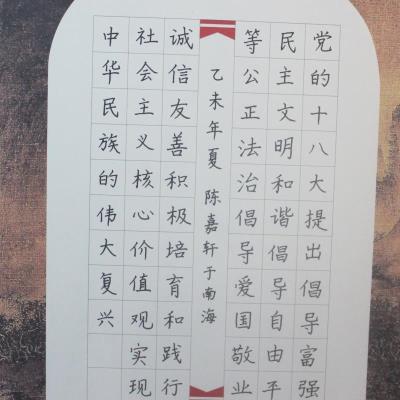 党的十八大提出倡导富强
民主文明和谐倡导自由平
等公正法治倡导爱国敬业
诚信友善积极培育和践行
社会主义核心价值观实现
中华民族的伟大复兴
乙未年夏陈嘉轩于南海